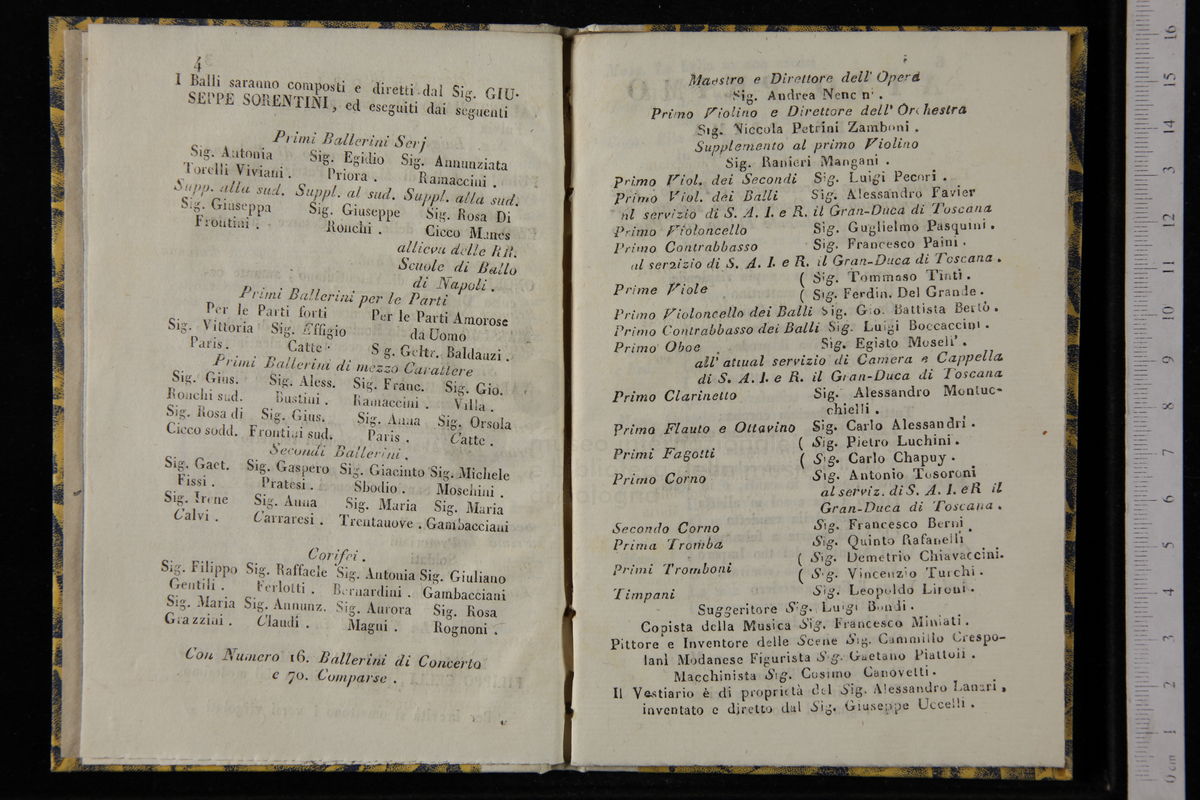 4
I Balli saranno composti e diretti dal Sig. GIU-
SEPPE SORENTINI, ed eseguiti dai seguenti
Primi Ballerini Serj
Sig. Antonia Sig. Egidio Sig. Annunziata
Torelli Viviani. Priora. Ramaccini.
Supp. alla sud. Suppl. al sud. Suppl. alla sud.
Sig. Giuseppa Sig. Giuseppe Sig. Rosa Di
Frontini. Ronchi. Cicco Manes
allieva delle RR.
Scuole di Ballo
di Napoli.
Primi Ballerini per le Parti
Per le Parti forti Per le Parti Amorose
Sig. Vittoria Sig. Effigio da Uomo
Paris. Catte. S g. Geltr. Baldanzi.
Primi Ballerini di mezzo Carattere
Sig. Gius. Sig. Aless. Sig. Franc. Sig. Gio.
Ronchi sud. Bustini. Ramaccini. Villa.
Sig. Rosa di Sig. Gius. Sig. Anna Sig. Orsola
Cicco sodd. Frontini sud. Paris. Catte.
Secondi Ballerini.
Sig. Gaet. Sig. Gaspero Sig. Giacinto Sig. Michele
Fissi. Pratesi. Sbodio. Moschini.
Sig. Irene Sig. Anna Sig. Maria Sig. Maria
Calvi. Carraresi. Trentanove. Gambacciani
Corifei.
Sig. Filippo Sig. Raffaele Sig. Antonia Sig. Giuliano
Gentili. Ferlotti. Bernardini. Gambacciani
Sig. Maria Sig. Annunz. Sig. Aurora Sig. Rosa
Grazzini. Claudi. Magni. Rognoni.
Con Numero 16. Ballerini di Concerto
e 70. Comparse.
Maestro e Direttore dell' Opera
Sig. Andrea Nenc n'.
Primo Violino e Direttore dell' Orchestra
Sig. Niccola Petrini Zamboni.
Supplemento al primo Violino
Sig. Ranieri Mangani.
Primo Viol. dei Secondi Sig. Luigi Pecori.
Primo Viol. dei Balli Sig. Alessandro Favier
al servizio di S. A. I. e R. il Gran-Duca di Toscana
Primo Violoncello Sig. Guglielmo Pasquini.
Primo Contrabbasso Sig. Francesco Paini.
al servizio di S. A. I. e R. il Gran-Duca di Toscana.
Prime Viole ( Sig. Tommaso Tinti.
( Sig. Ferdin. Del Grande.
Primo Violoncello dei Balli Sig. Gio. Battista Berto.
Primo Contrabbasso dei Balli Sig. Luigi Boccaccini.
Primo Oboe Sig. Egisto Moseli'.
all' attual servizio di Camera e Cappella
di S. A. I. e R. il Gran-Duca di Toscana
Primo Clarinetto Sig. Alessandro Montuc-
chielli.
Primo Flauto e Ottavino Sig. Carlo Alessandri.
Primi Fagotti ( Sig. Pietro Luchini.
( Sig. Carlo Chapuy.
Primo Corno Sig. Antonio Tosoroni
al serviz. di S. A. I. e R il
Gran-Duca di Toscana.
Secondo Corno Sig. Francesco Berni.
Prima Tromba Sig. Quinto Rafanelli
Primi Tromboni ( Sig. Demetrio Chiavaccini.
( Sig. Vincenzio Turchi.
Timpani Sig. Leopoldo Lironi.
Suggeritore Sig. Luigi Bondi.
Copista della Musica Sig. Francesco Miniati.
Pittore e Inventore delle Scene Sig. Cammillo Crespo-
lani Modanese Figurista Sig. Gaetano Piattoli.
Macchinista Sig. Cosimo Canovetti.
Il Vestiario è di proprietà del Sig. Alessandro Lanari,
inventato e diretto dal Sig. Giuseppe Uccelli.
0 cm 1 2 3 4 5 6 7 8 9 10 11 12 13 14 15 16